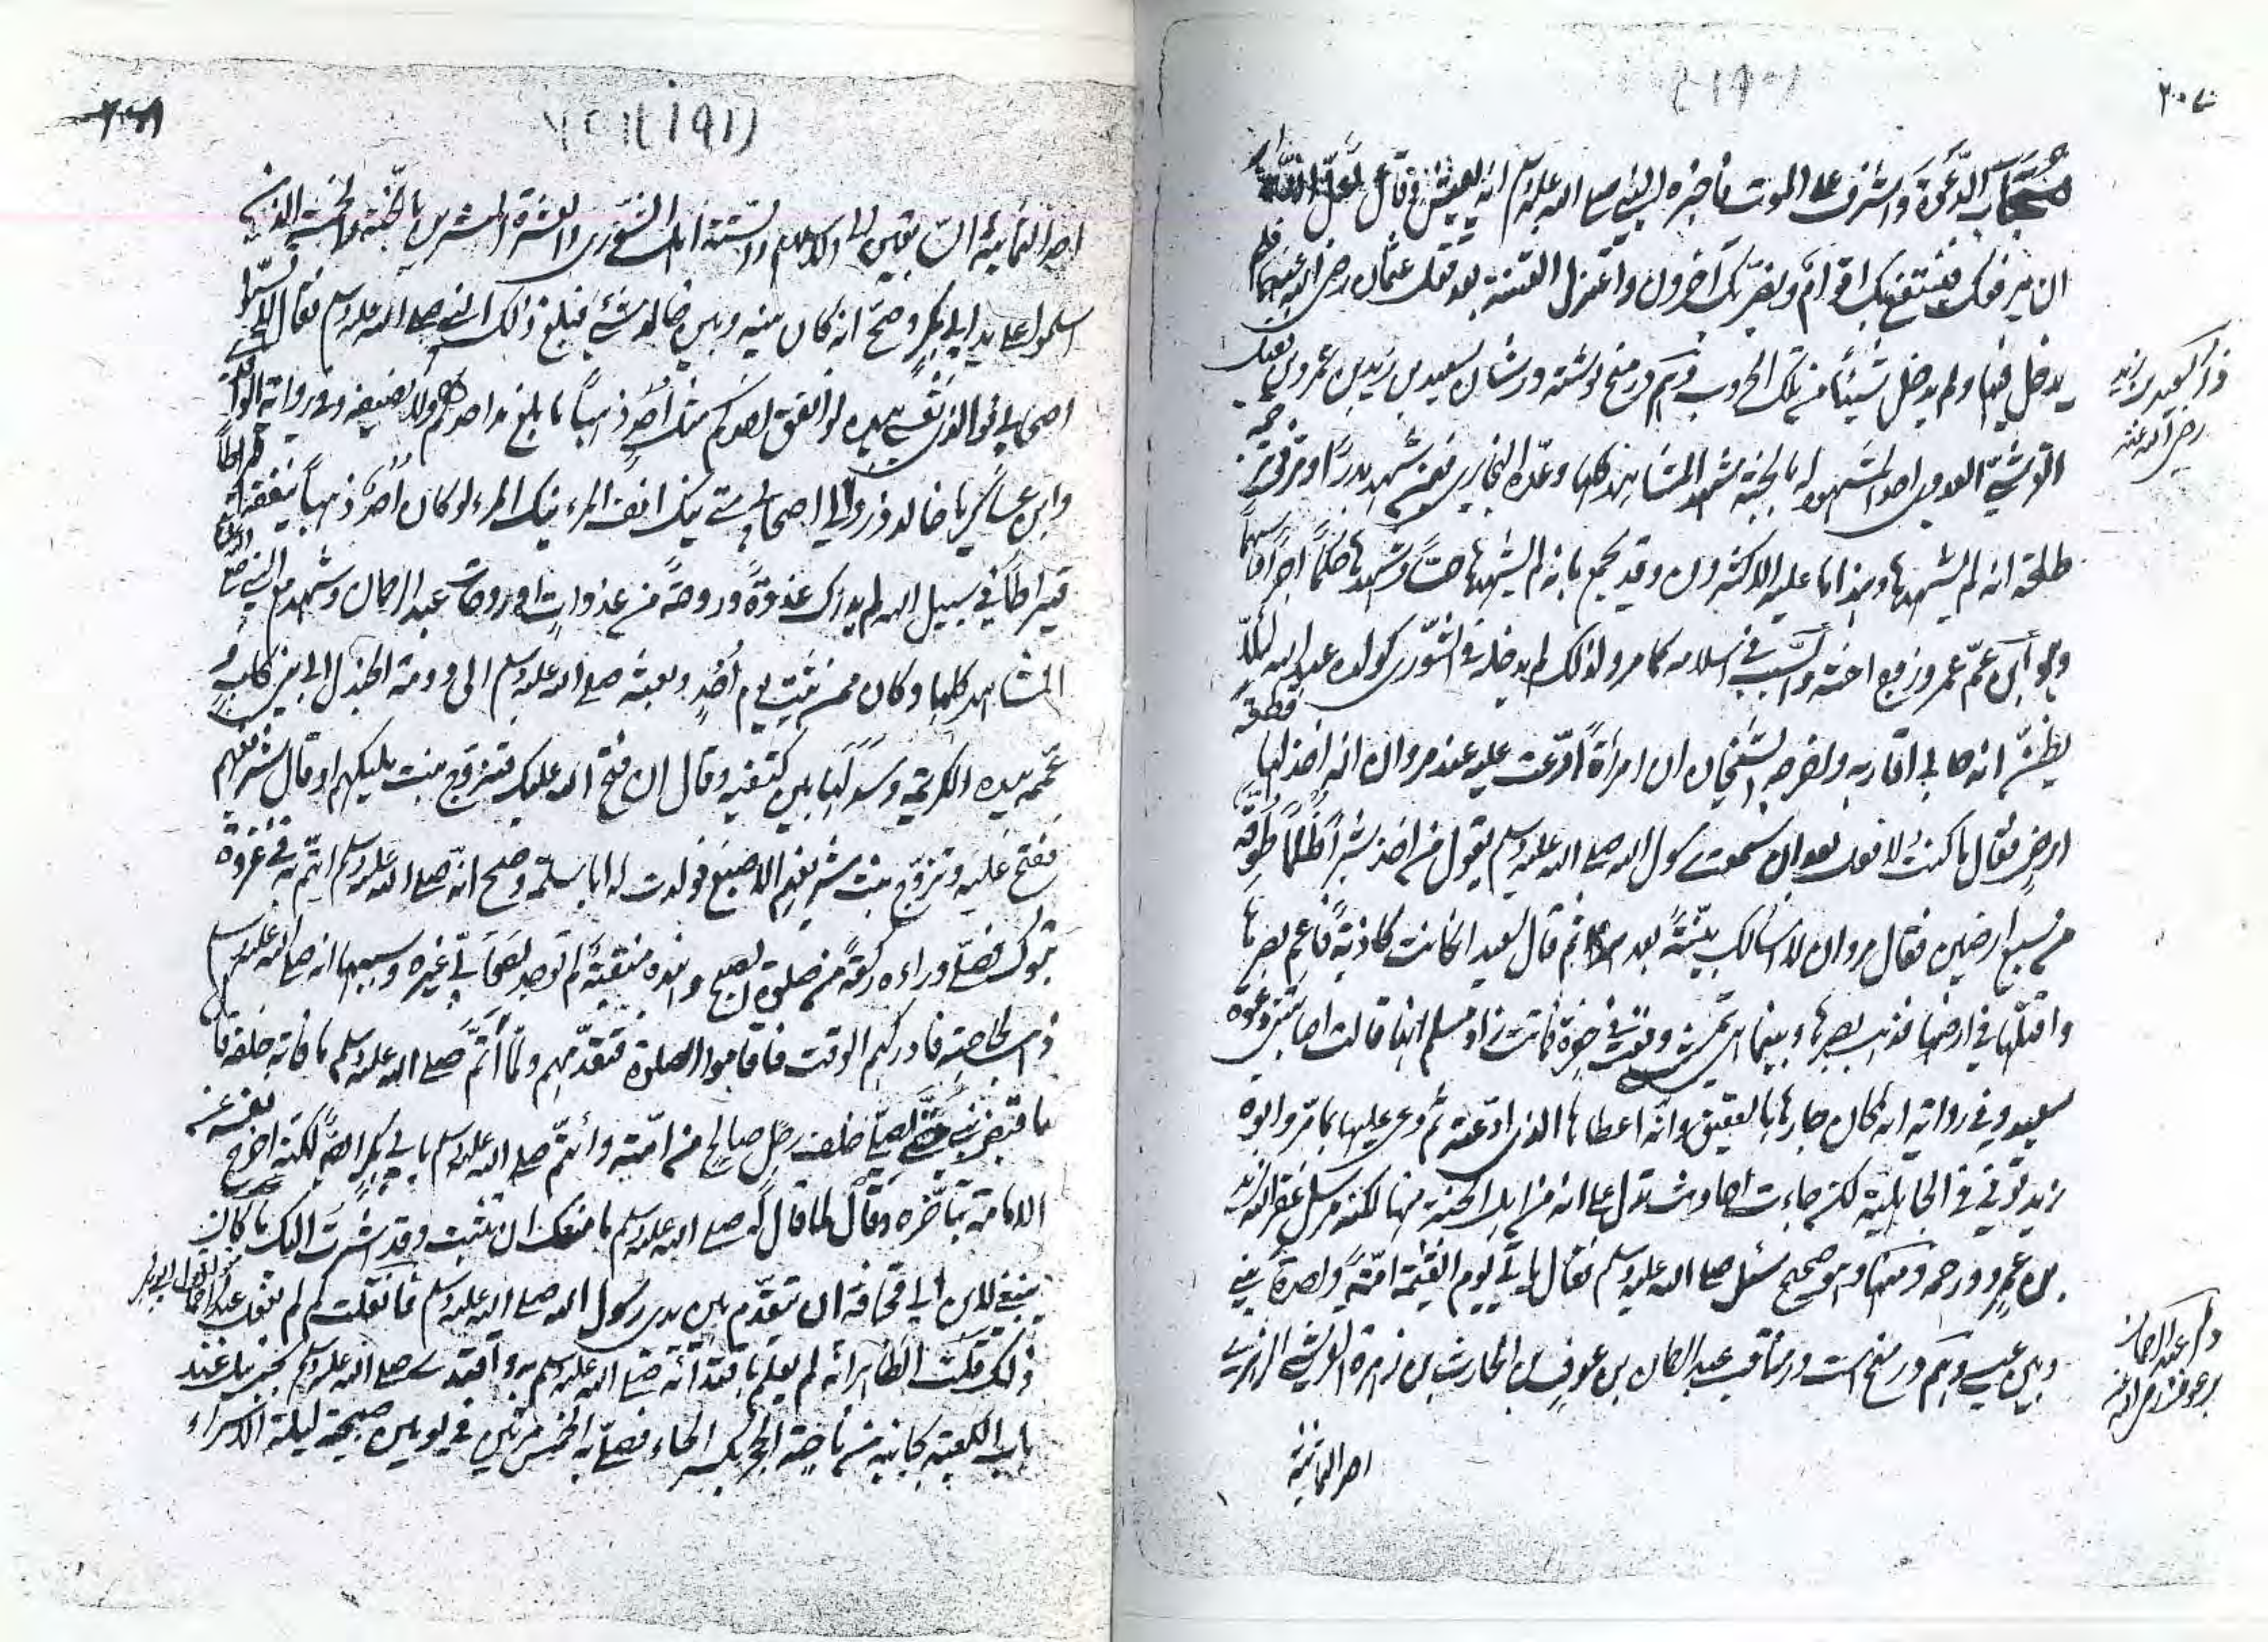 ٢٠٧
مجاب الدعوة واشرف على الموت فاخبره النبي صلى الله عليه وسلم انه يعيش فقال لعل الله
ان يرفعك فينتفع بك اقوام ويضر بك آخرون واعتزل الفتنة بعد قتل عثمان رضى الله عنهما فلم
يدخل فيها ولم يدخل شيئا من تلك الحروب وهم در منح نوشته در شان سعيد بن زيد بن عمرو بن نفيل
ذكر سعيد بن زيد
رضى الله عنه
القرشي العدوي احد المشهود له بالجنة شهد المشاهد كلها وعده البخاري فيمن شهد بدرا ومر في ترجمة
طلحة انه لم يشهدها وهذا ما عليه الاكثرون وقد يجمع بانه لم يشهدها حسا وشهدها حكما اجرا وسهما
وهو ابن عم عمر وزوج اخته والسبب في اسلامه كما مر ولذلك لم يدخله في الشورى كولده عبد الله لئلا
يظن انه حابى اقاربه واخرج الشيخان ان امرأة ادعت عليه عند مروان انه اخذ لها قطعة
ارض فقال ما كنت لافعل بعد ان سمعت رسول الله صلى الله عليه وسلم يقول من اخذ شبرا ظلما طوقه
من سبع ارضين فقال مروان لا اسألك بينة بعد هذا ثم قال سعيد ان كانت كاذبة فاعم بصرها
واقتلها في ارضها فذهب بصرها وبينما هي تمشي وقعت في حفرة فماتت زاد مسلم انها قالت اصابتني دعوة
سعيد وفي رواية انه كان جارها بالعقيق وانه اعطاها الذي ادعته ثم دعى عليها بما مر وابوه
زيد توفي في الجاهلية لكن جاءت احاديث تدل على انه من اهل الجنة منها لكنه مرسل غفر الله لزيد
بن عمرو ورحمه ومنها وهو صحيح سئل صلى الله عليه وسلم فقال يأتي يوم القيمة امة واحدة بيني
وبين عيسى وهم در منح است در مناقب عبد الرحمان بن عوف بن الحارث بن زهرة القرشي الزهري
ذكر عبد الرحمان
بن عوف رضى الله عنه
احد الثمانية
٢٠٨
احد الثمانية السابقين الى الاسلام والستة اهل الشورى والعشرة المبشرين بالجنة والخمسة الذين
اسلموا على يد ابي بكر وصح انه كان بينه وبين خالد شئ فبلغ ذلك النبي صلى الله عليه وسلم فقال لا تسبوا
اصحابي فوالذي نفسي بيده لو انفق احدكم مثل احد ذهبا ما بلغ مد احدهم ولا نصيفه وفي رواية الواقدي
وابن عساكر يا خالد ذروا لي اصحابي متى ينك انف المرء ينك المرء لو كان احد ذهبا تنفقه قيراطا
قيراطا في سبيل الله لم يدرك غدوة وروحة من غدوات او روحات عبد الرحمان وشهد مع النبي صلى
المشاهد كلها وكان ممن ثبت يوم احد وبعثه صلى الله عليه وسلم الى دومة الجندل الى بني كلب و
عممه بيده الكريمة وسدلها بين كتفيه وقال ان فتح الله عليك فتزوج بنت مليكهم او قال شريفهم
ففتح عليه وتزوج بنت شريفهم الاصبغ فولدت له ابا سلمة وصح انه صلى الله عليه وسلم ائتم به في غزوة
تبوك فصلى وراءه ركعة من صلوة الصبح وهذه منقبة لم توجد لصحابي غيره وسببها انه صلى الله عليه وسلم
ذهب لحاجته فادركهم الوقت فاقاموا الصلوة فتقدمهم ولما أتم صلى الله عليه وسلم ما فاته خلفه قال
ما قبض نبي حتى يصلي خلف رجل صالح من امته وائتم صلى الله عليه وسلم بابي بكر ايضا لكنه اخرج نفسه عن
الامامة بتأخره وقال لما قال له صلى الله عليه وسلم ما منعك ان تثبت وقد اشرت اليك ما كان
ينبغي لابن ابي قحافة ان يتقدم بين يدي رسول الله صلى الله عليه وسلم فان قلت لم لم يفعل عبد الرحمان كفعل ابي بكر
ذلك قلت الظاهر انه لم يعلم باقتدائه صلى الله عليه وسلم به واقتدى صلى الله عليه وسلم بجبريل عند
باب الكعبة بجانبه من ناحية الحجر بكسر الحاء فصلى به الخمس مرتين في يومين صبيحة ليلة الاسراء